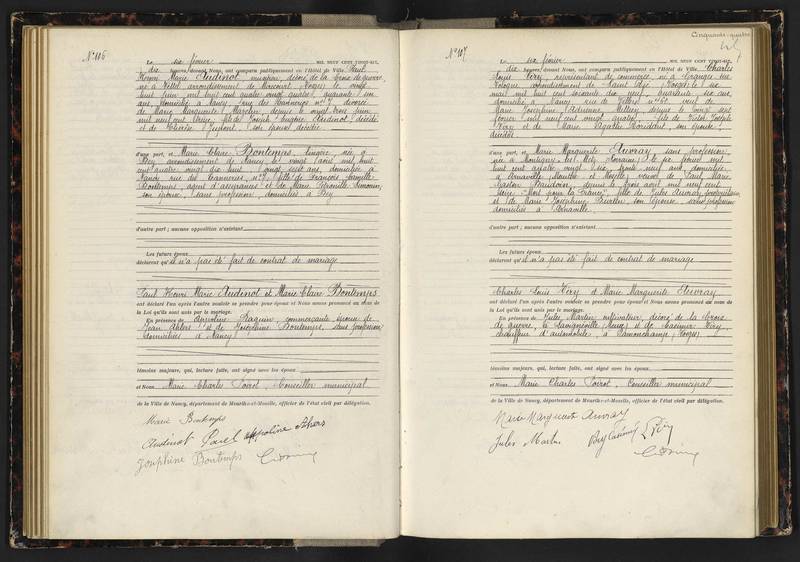 N° 106
Le six février MIL NEUF CENT VINGT-SIX,
dix heures, devant Nous, ont comparu publiquement en l'Hôtel de Ville Paul
Henri Marie Audinot, décoré de la Croix de guerre,
né à arrondissement de Mirecourt (Vosges) le
juin mil huit cent quatre vingt quatre, quarante un
ans, domicilié à Nancy, rue des Tanneries n° 7, divorcé
de Marie Marguerite depuis le vingt trois juin
mil neuf cent fils de Louis Eugène Audinot décédé
et de son épouse décédée
d'une part, et Marie Claire Bontemps, lingère, née à
Bey arrondissement de Nancy le vingt août mil huit
cent quatre vingt dix huit vingt sept ans, domiciliée à
Nancy rue des Tanneries, n° 7, fille de François Camille
Bontemps, agent d'assurances et de Marie Pétronille Simonin,
son épouse, sans profession, domiciliés à Bey
d'autre part ; aucune opposition n'existant
Les futurs époux
déclarent qu'il n'a pas été fait de contrat de mariage
Paul Henri Marie Audinot et Marie Claire Bontemps
ont déclaré l'un après l'autre vouloir se prendre pour époux et Nous avons prononcé au nom de
la Loi qu'ils sont unis par le mariage.
En présence de Appoline commerçante épouse de
Jean et de Joséphine Bontemps, sans profession
domiciliées à Nancy
témoins majeurs, qui, lecture faite, ont signé avec les époux
et Nous Marie Charles Poirot, Conseiller municipal
de la Ville de Nancy, département de Meurthe-et-Moselle, officier de l'état civil par délégation.
Marie Bontemps
Audinot Paul Appoline
Joséphine Bontemps
Cinquante-quatre
N° 107
Le six février MIL NEUF CENT VINGT-SIX,
dix heures, devant Nous, ont comparu publiquement en l'Hôtel de Ville Charles
Louis Véry, représentant de commerce, né à Granges sur
Vologne arrondissement de Saint Dié (Vosges) le six
mai mil huit cent soixante dix neuf, quarante six ans,
domicilié à Nancy rue de Villers n° veuf de
Marie Joséphine Adrienne depuis le vingt sept
février mil neuf cent vingt quatre, fils de Joseph
Véry et de Marie Agathe son épouse,
décédés
d'une part, et Marie Marguerite Auvray sans profession
née à Montigny les Metz (Lorraine) le février mil
huit cent quatre vingt six, trente neuf ans, domiciliée
à Arnaville Meurthe et Moselle, veuve de Paul Marie
Gaston Baudoin, depuis le trois avril mil neuf cent
seize "Mort pour la France", fille de Jules Auvray, propriétaire
et de Marie Joséphine son épouse, sans profession
domiciliés à Arnaville
d'autre part ; aucune opposition n'existant
Les futurs époux
déclarent qu'il n'a pas été fait de contrat de mariage
Charles Louis Véry et Marie Marguerite Auvray
ont déclaré l'un après l'autre vouloir se prendre pour époux et Nous avons prononcé au nom de
la Loi qu'ils sont unis par le mariage.
En présence de Jules Martin cultivateur, décoré de la Croix
de guerre, à Savigneville (Meuse) et de Casimir Véry,
chauffeur d'automobile, à Ramonchamp (Vosges)
témoins majeurs, qui, lecture faite, ont signé avec les époux
et Nous Marie Charles Poirot, Conseiller municipal
de la Ville de Nancy, département de Meurthe-et-Moselle, officier de l'état civil par délégation.
Marie Marguerite Auvray
Jules Martin Véry Casimir L Véry